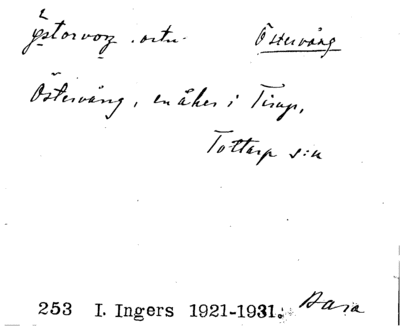 ö̀storvoŋ . ortn. Östervång
Östervång, en åker i Tirup,
Tottarp s:n
253 I. Ingers 1921-1931. Bara